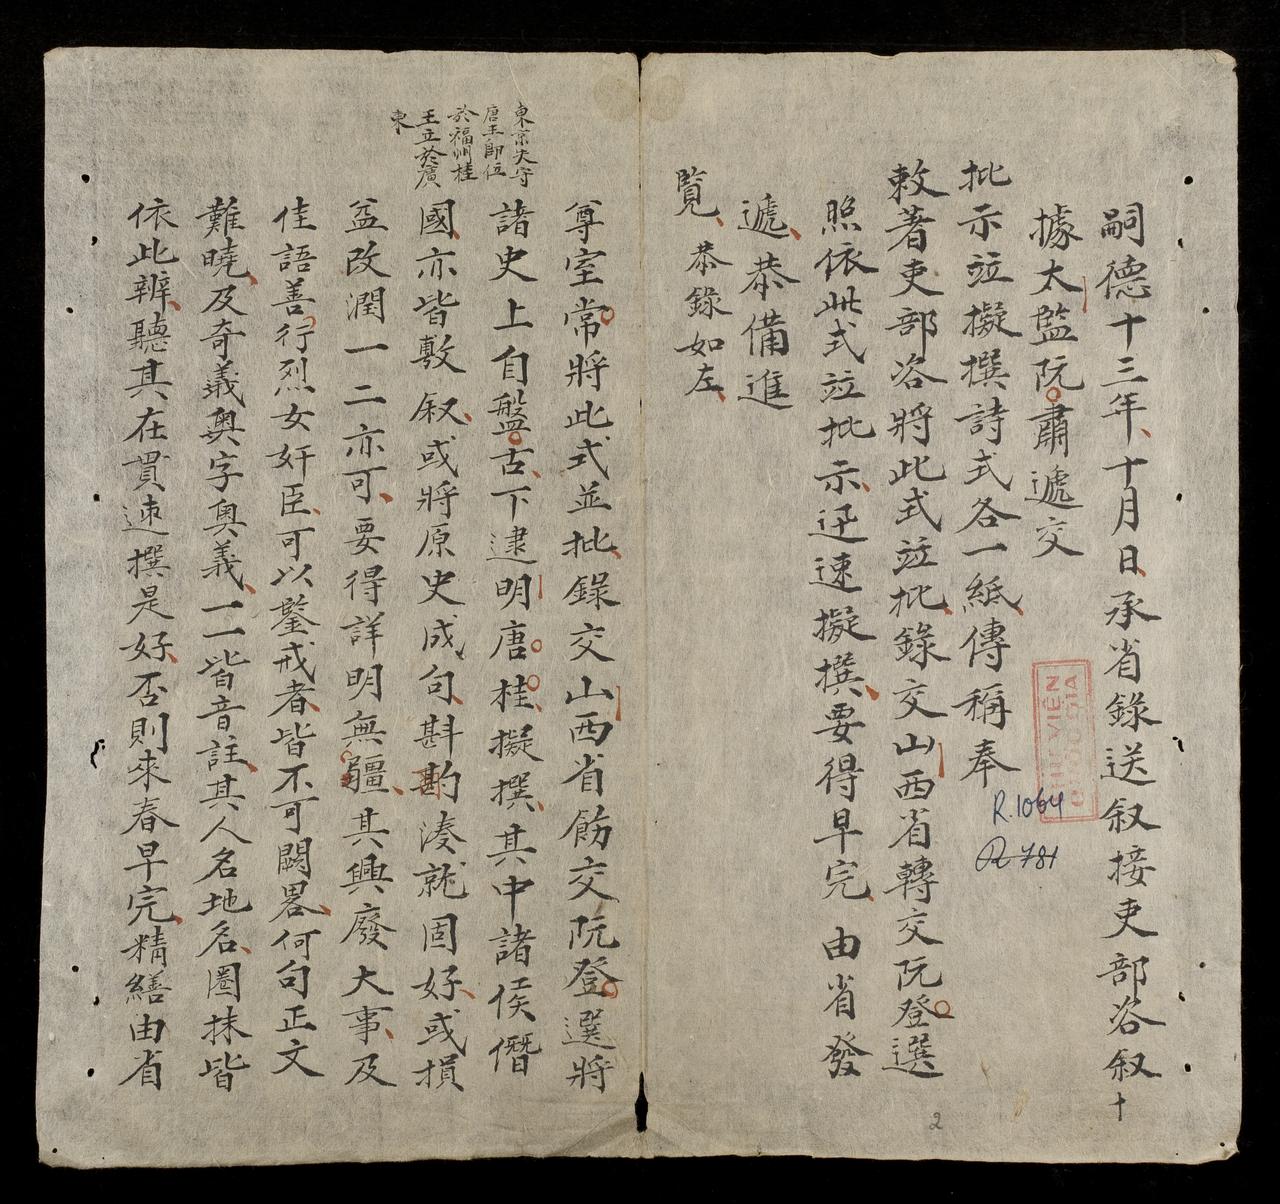 嗣德十三年十月日承省錄送叙接吏部咨叙十
據太監阮肅遞交
批示竝擬撰詩式各一紙傳稱奉
敕著吏部咨將此式竝批錄交山西省轉交阮登選
照依此式竝批示迅速擬撰要得早完由省發
遞恭備進
覽恭錄如左
尊室常將此式並批錄交山西省飭交阮登選將
諸史上自盤古下逮明唐桂擬撰其中諸侯僭
國亦皆敷叙或將原史成句斟酌湊就固好或損
益改潤一二亦可要得詳明無疆其興廢大事及
佳語善行烈女奸臣可以鑒戒者皆不可闕畧何句正文
難曉及奇義奧字奧義一一皆音註其人名地名圈抹皆
依此辨聽其在貫速撰是好否則來春早完精繕由省
東京失守
唐王即位
於福州桂
王立於廣
東
THƯ VIỆN
QUỐC GIA
R.1064
R 781
2